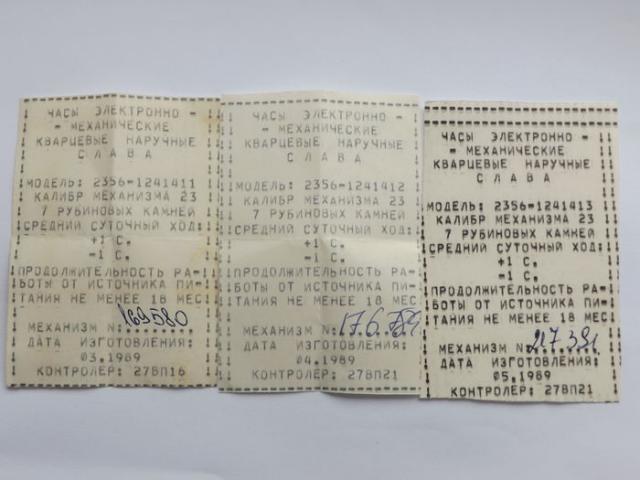 ЧАСЫ ЭЛЕКТРОННО -
- МЕХАНИЧЕСКИЕ
КВАРЦЕВЫЕ НАРУЧНЫЕ
СЛАВА
МОДЕЛЬ: 2356=1241411
КАЛИБР МЕХАНИЗМА 23
7 РУБИНОВЫХ КАМНЕЙ
СРЕДНИЙ СУТОЧНЫЙ ХОД:
+1 С,
=1 С,
ПРОДОЛЖИТЕЛЬНОСТЬ РА-
БОТЫ ОТ ИСТОЧНИКА ПИ-
ТАНИЯ НЕ МЕНЕЕ 18 МЕС
МЕХАНИЗМ N: 169580
ДАТА ИЗГОТОВЛЕНИЯ:
03.1989
КОНТРОЛЕР: 278П16
ЧАСЫ ЭЛЕКТРОННО -
- МЕХАНИЧЕСКИЕ
КВАРЦЕВЫЕ НАРУЧНЫЕ
СЛАВА
МОДЕЛЬ: 2356=1241412
КАЛИБР МЕХАНИЗМА 23
7 РУБИНОВЫХ КАМНЕЙ
СРЕДНИЙ СУТОЧНЫЙ ХОД:
+1 С,
=1 С,
ПРОДОЛЖИТЕЛЬНОСТЬ РА-
БОТЫ ОТ ИСТОЧНИКА ПИ-
ТАНИЯ НЕ МЕНЕЕ 18 МЕС
МЕХАНИЗМ N:
ДАТА ИЗГОТОВЛЕНИЯ:
04.1989
КОНТРОЛЕР: 278П21
ЧАСЫ ЭЛЕКТРОННО -
- МЕХАНИЧЕСКИЕ
КВАРЦЕВЫЕ НАРУЧНЫЕ
СЛАВА
МОДЕЛЬ: 2356=1241413
КАЛИБР МЕХАНИЗМА 23
7 РУБИНОВЫХ КАМНЕЙ
СРЕДНИЙ СУТОЧНЫЙ ХОД:
+1 С,
=1 С,
ПРОДОЛЖИТЕЛЬНОСТЬ РА-
БОТЫ ОТ ИСТОЧНИКА ПИ-
ТАНИЯ НЕ МЕНЕЕ 18 МЕС
МЕХАНИЗМ N:
ДАТА ИЗГОТОВЛЕНИЯ:
05.1989
КОНТРОЛЕР: 278П21